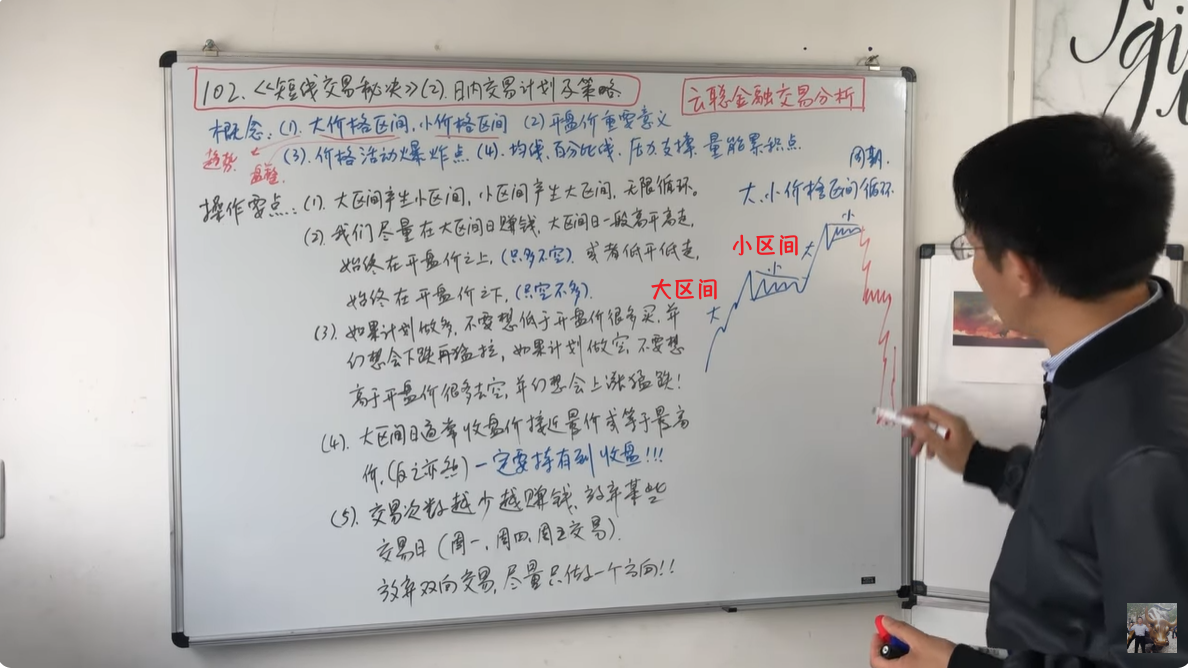 102.《短线交易秘决》(2).日内交易计划及策略
云聪金融交易分析
概念:(1).大价格区间,小价格区间 (2)开盘价重要意义
趋势 盘整
(3).价格活动爆炸点 (4).均线,百分比线,压力支撑,量能累积点
周期.
大、小价格区间循环.
操作要点:(1).大区间产生小区间,小区间产生大区间,无限循环。
(2).我们尽量在大区间日赚钱,大区间日一般高开高走,
始终在开盘价之上,(只多不空).或者低开低走,
始终在开盘价之下,(只空不多).
(3).如果计划做多,不要想低于开盘价很多买,并
幻想会下跌再猛拉,如果计划做空,不要想
高于开盘价很多去空,并幻想会上涨猛跌!
(4).大区间日通常收盘价接近最价或等于最高
价,(反之亦然)一定要持有到收盘!!!
(5).交易次数越少越赚钱,放弃某些
交易日(周一,周四,周五交易).
放弃双向交易,尽量只做一个方向!!
小区间
大区间
大
小
大
小